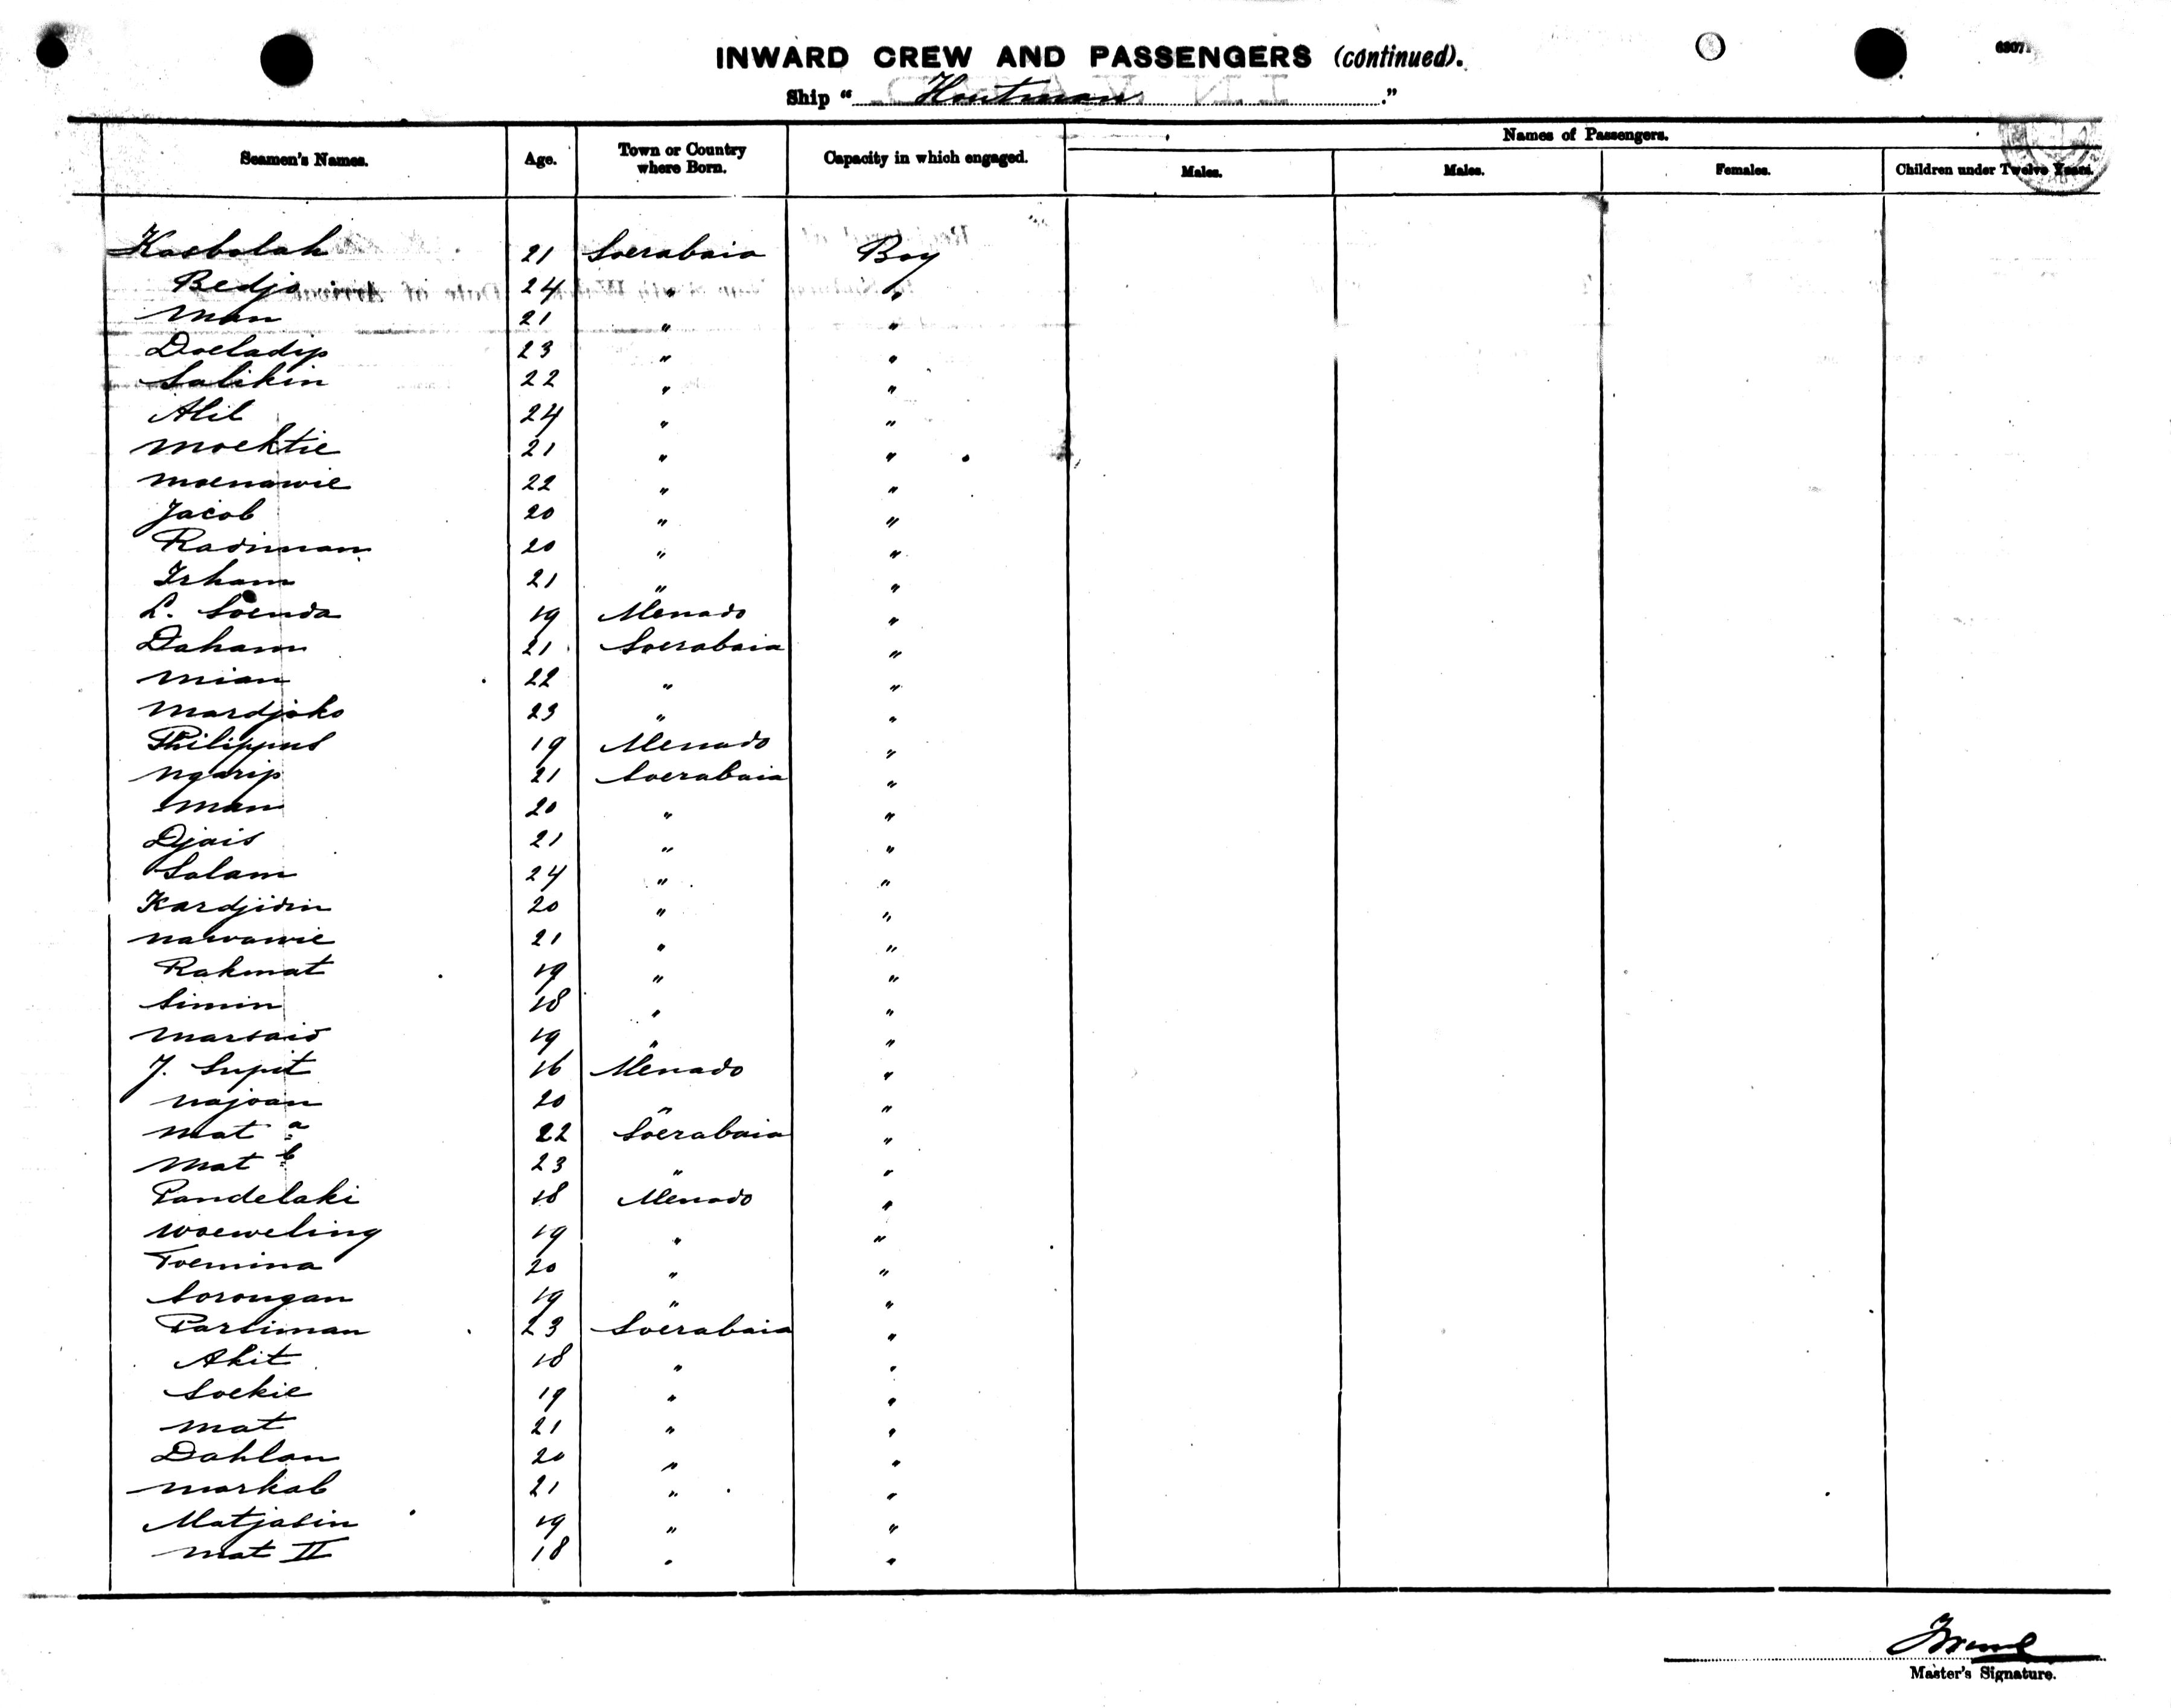 6307
INWARD CREW AND PASSENGERS (continued).
Ship " Houtman ."
Names of Passengers.
Seamen's Names. Age. Town or Country where Born. Capacity in which engaged. Males. Males. Females. Children under Twelve Years.
Kasbolah 21 Soerabaia Boy
Bedjo 24 " "
Man 21 " "
Doeladip 23 " "
Salikin 22 " "
Alil 24 " "
Moektie 21 " "
Moenawie 22 " "
Jacob 20 " "
Radiman 20 " "
Irham 21 " "
L. Soenda 19 Menado "
Daham 21 Soerabaia "
Mian 22 " "
Mardjoko 23 " "
Philippus 19 Menado "
Ngarip 21 Soerabaia "
Man 20 " "
Djais 21 " "
Salam 24 " "
Kardjidin 20 " "
Nawawie 21 " "
Rakmat 19 " "
Simin 18 " "
Marsaid 19 " "
J. Supit 16 Menado "
Najoan 20 " "
Mat a 22 Soerabaia "
Mat b 23 " "
Pandelaki 18 Menado "
Woeweling 19 " "
Toemina 20 " "
Sorongan 19 " "
Parsiman 23 Soerabaia "
Akit 18 " "
Soekie 19 " "
Mat 21 " "
Dahlan 20 " "
Markab 21 " "
Matjasin 19 " "
Mat II 18 " "
Master's Signature.